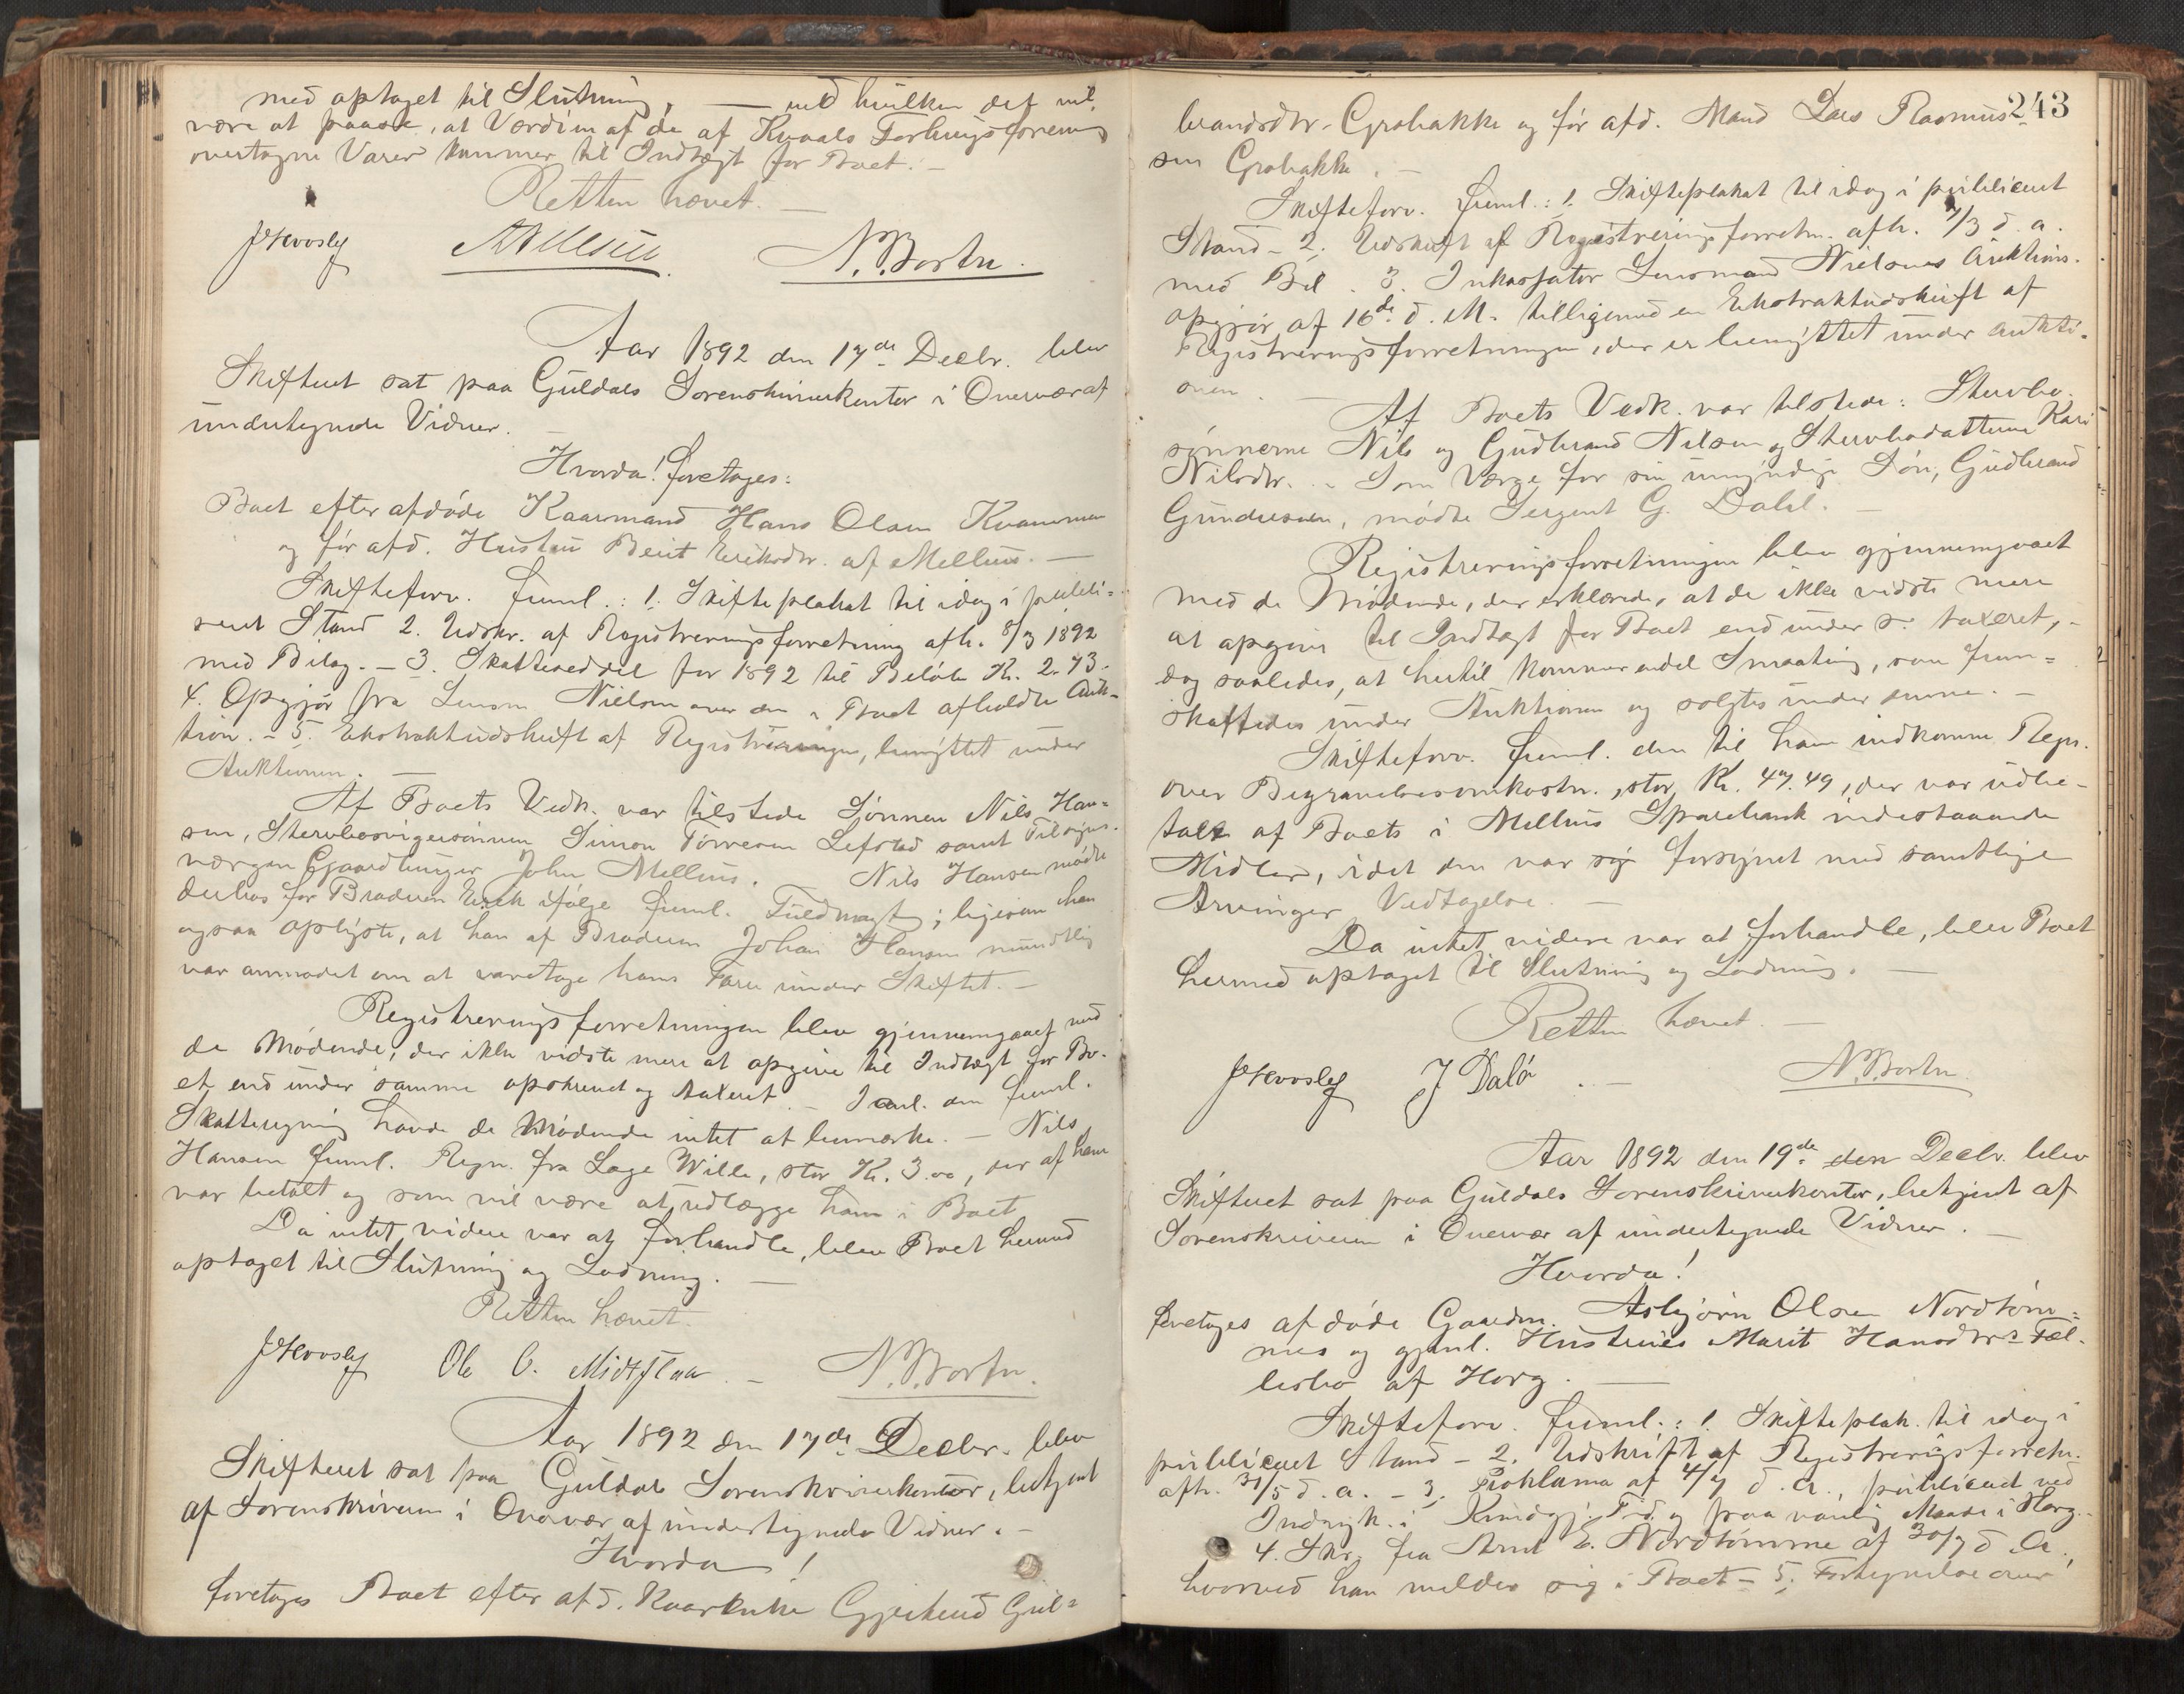 med optaget til Slutning, — ved hvilken det vil
være at paase, at Værdien af de af Kvaals Forbrugsforening
overtagne Varer kommer til Indtægt for Boet. –
Retten hævet. –
N. Bortn.
Aar 1892 den 17de Decbr. blev
Skifteret sat paa Guldals Sorenskriverkontor i Overvær af
undertegnede Vidner. –
Hvorda! foretages:
Boet efter afdøde Kaarmand Hans Olsen Kvammen
og før afd. Hustru Berit Eriksdtr. af Melhus. —
Skifteforv. freml.: 1. Skifteplakat til idag i publi=
ceret Stand 2. Udskr. af Registreringsforretning afh. 8/3 1892
med Bilag. – 3. Skatteseddel for 1892 til Beløb Kr. 2.73.
4. Opgjør fra Lensm. Nielsen over den i Boet afholdte Auk-
tion. – 5. Ekstraktudskrift af Registreringen, benyttet under
Auktionen. —
Af Boets Vedk. var tilstede Sønnen Nils Han=
sen, Stervbosvigersønnen Simon Torresen Lefstad samt Tilsyns-
værgen Gaardbruger John Melhus. Nils Hansen mødte
derhos for Broderen Erik ifølge freml. Fuldmagt; ligesom han
ogsaa oplyste, at han af Broderen Johan Hansen mundtlig
var anmodet om at varetage hans Tarv under Skiftet. –
Registreringsforretningen blev gjennemgaaet med
de Mødende, der ikke vidste mere at opgive til Indtægt for Bo-
et end under samme opskrevet og taxeret. – I anl. den freml.
Skatteregning havde de Mødende intet at bemærke. – Nils
Hansen freml. Regn. fra Læge Wille, stor Kr. 3.00, der af ham
var betalt og som vil være at udlægge ham i Boet
Da intet videre var at forhandle, blev Boet hermed
optaget til Slutning og Lodning. —
Retten hævet.
Ole O. Midtflaa. – N. Bortn.
Aar 1892 den 17de Decbr. blev
Skifteret sat paa Guldals Sorenskriverkontor, betjent
af Sorenskriveren i Overvær af undertegnede Vidner. –
Hvorda!
foretages Boet efter afd. Kaarenke Gjertrud Gul=
243
brandsdtr. Grobakke og før afd. Mand Lars Rasmus-
sen Grobakke. –
Skifteforv. freml.: 1. Skifteplakat til idag i publiceret
Stand – 2. Udskrift af Registreringsforretn. afh. 7/3 d. a.
med Bil. 3. Inkassator Lensmand Nielsens Auktions-
opgjør af 16de d. M. tilligemed en Ekstraktudskrift af
Registreringsforretningen, der er benyttet under Aukti-
onen. –
Af Boets Vedk. var tilstede: Stervbo-
sønnerne Nils og Gudbrand Nilsen og Stervbodatteren Kari
Nilsdtr. – Som Værge for sin umyndige Søn, Gudbrand
Gundersen, mødte Sergent G. Dahl. –
Registreringsforretningen blev gjennemgaaet
med de Mødende, der erklærede, at de ikke vidste mere
at opgive til Indtægt for Boet end under s. taxeret, –
dog saaledes, at hertil kommer endel Smaating, som frem=
skaffedes under Auktionen og solgtes under denne. –
Skifteforv. freml. den til ham indkomne Regn.
over Begravelsesomkostn., stor Kr. 47.49, der var udbe-
talt af Boets i Melhus Sparebank indestaaende
Midler, idet den var forsynet med samtlige
Arvinger Vedtagelse. –
Da intet videre var at forhandle, blev Boet
hermed optaget til Slutning og Lodning. —
Retten hævet. –
J Dalø. – N. Bortn
Aar 1892 den 19de den Decbr. blev
Skifteret sat paa Guldals Sorenskriverkontor, betjent af
Sorenskriveren i Overvær af undertegnede Vidner. –
Hvorda!
foretages afdøde Gaardm. Asbjørn Olsen Nordtøm=
mes og gjenl. Hustrues Marit Hansdtr.s Fæl-
lesbo af Horg. —
Skifteforv. freml.: 1. Skifteplak. til idag i
publiceret Stand – 2. Udskrift af Registreringsforretn.
afh. 31/5 d. a. – 3. Proklama af 4/7 d. a., publiceret ved
Indryk. i Kundgj. Tid. og paa vanlig Maade i Horg. –
4. Skr. fra Arnt E. Nordtømme af 30/7 d. A.,
hvorved han melder sig i Boet – 5. Fortegnelse over